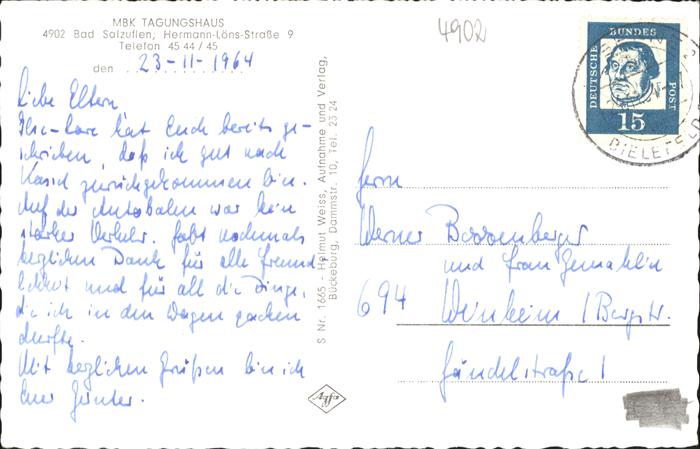 MBK TAGUNGSHAUS
4902 Bad Salzuflen, Hermann-Löns-Straße 9
Telefon 45 44 / 45
den 23-11-1964
Liebe Eltern
hat Euch bereits ge-
schrieben, daß ich gut nach
zurückgekommen bin.
Auf der Autobahn war kein
starker Verkehr. Habt nochmals
herzlichen Dank für alle Freund-
lichkeit und für all die Dinge,
die ich in den Wagen packen
durfte.
Mit herzlichen Grüßen bin ich
Euer Günter.
S Nr. 1665 - Helmut Weiss, Aufnahme und Verlag,
Bückeburg, Dammstr. 10, Tel. 23 24
Agfa
4902
DEUTSCHE BUNDESPOST
15
BIELEFELD
Herrn
Werner
und Frau Gemahlin
694 Weinheim / Bergstr.
Händelstraße 1